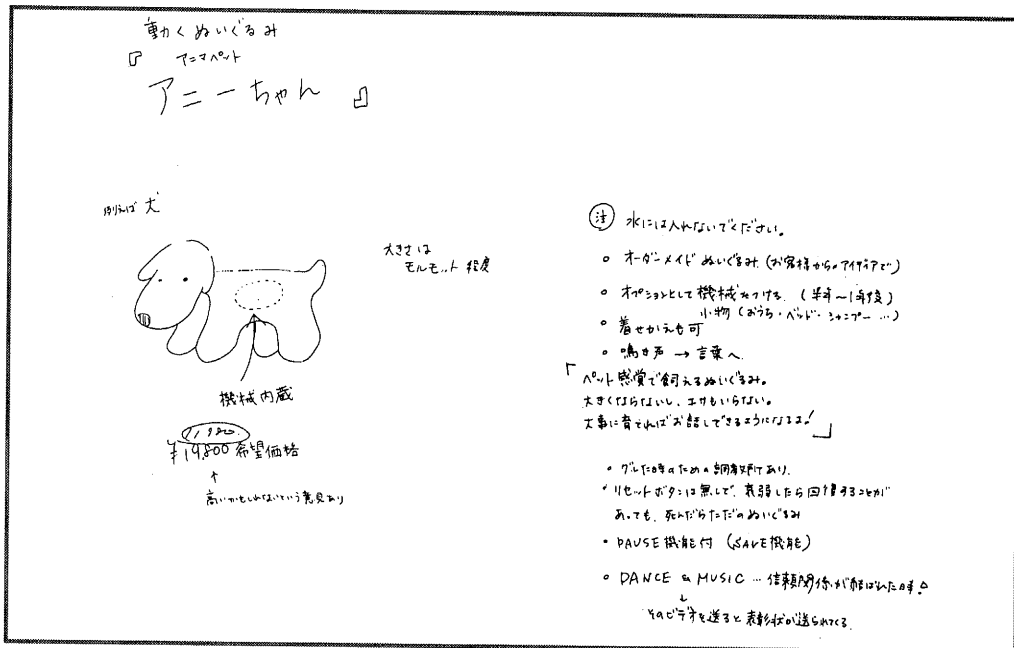 動くぬいぐるみ
『 アニマペット
アニーちゃん 』
例えば 犬
大きさは
モルモット 程度
機械内蔵
¥19,800 希望価格
↑
高いかもしれないという意見あり
注 水には入れないでください。
• オーダーメイド ぬいぐるみ (お客様からのアイディアで)
• オプションとして 機械をつける. (半年〜1年後)
小物 (おうち・ベッド・シャンプー …)
• 着せかえも可
• 鳴き声 → 言葉へ
「ペット感覚で飼えるぬいぐるみ。
大きくならないし、エサもいらない。
大事に育てればお話しできるようになるよ!」
• グレた時のための
• リセットボタンは無しで、衰弱したら回復することが
あっても、死んだらただのぬいぐるみ
• PAUSE機能付 (SAVE機能)
• DANCE & MUSIC … 信頼関係が結ばれた時
↓
そのビデオを送ると表彰状が送られてくる.